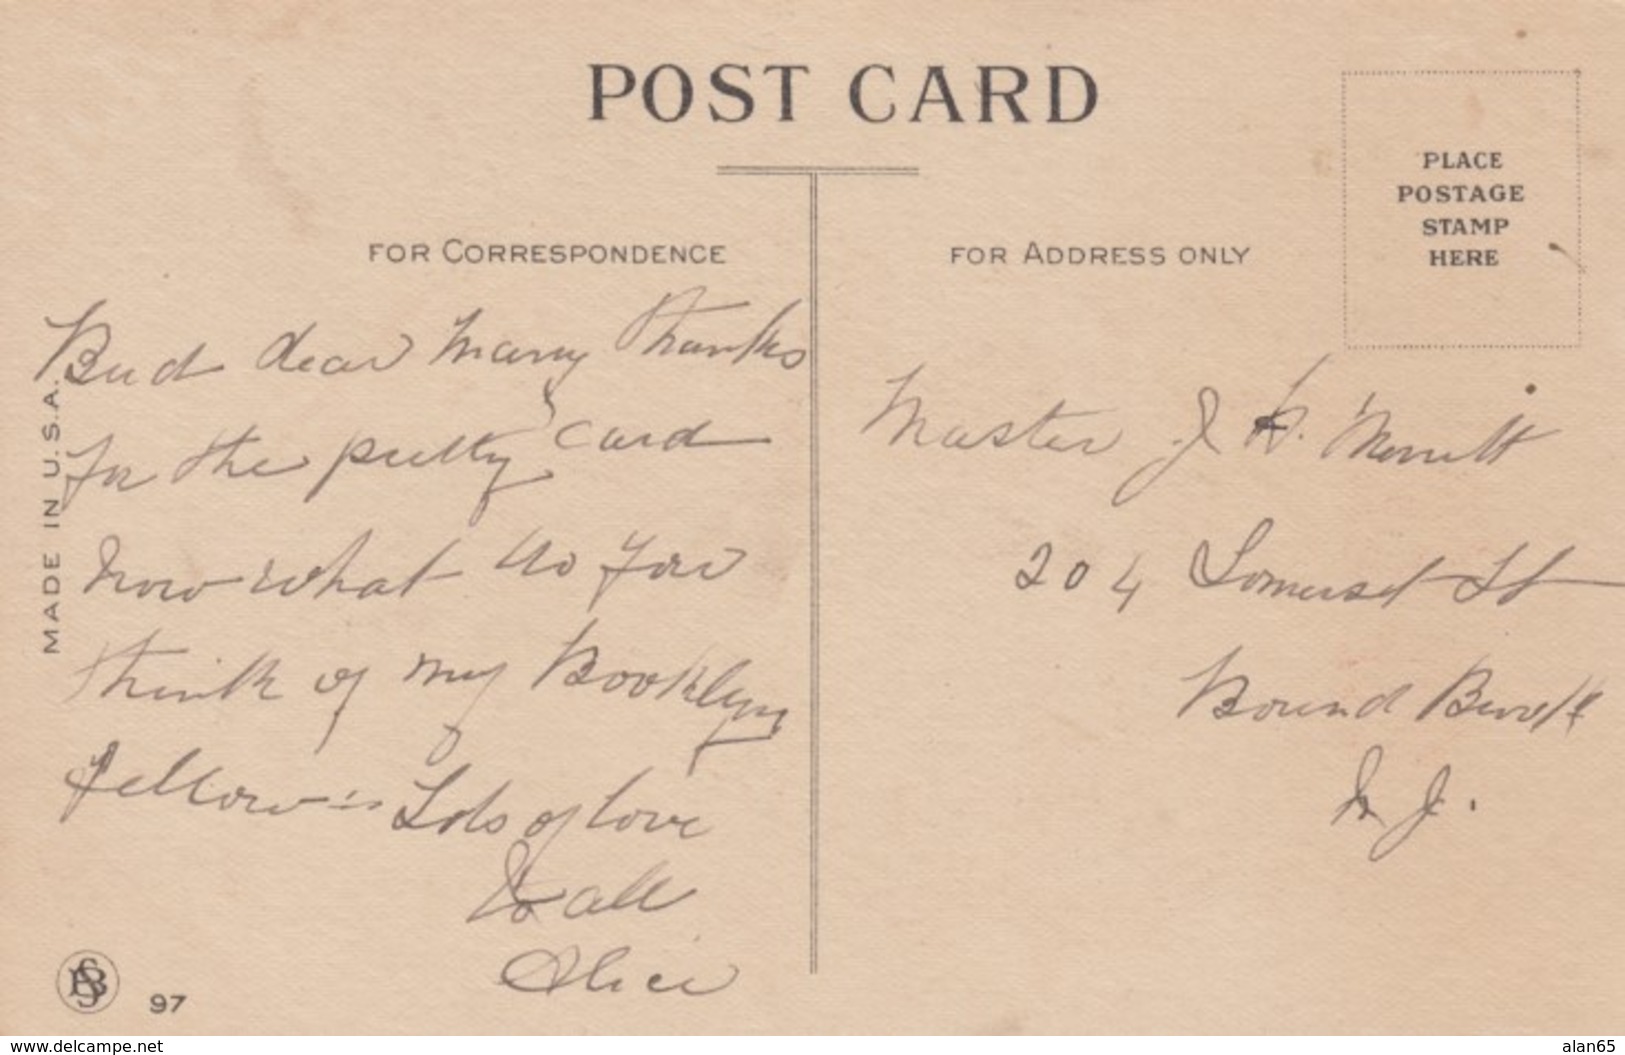 POST CARD
PLACE
POSTAGE
STAMP
HERE
FOR CORRESPONDENCE
FOR ADDRESS ONLY
Bud dear Many thanks
for the pretty card
Now what do you
think of my Booklyn
fellow - Lots of love
to all
Alice
Master J H. Merritt
204 Somerset St
Bound Brook
N J.
MADE IN U.S.A.
97
www.delcampe.net
alan65